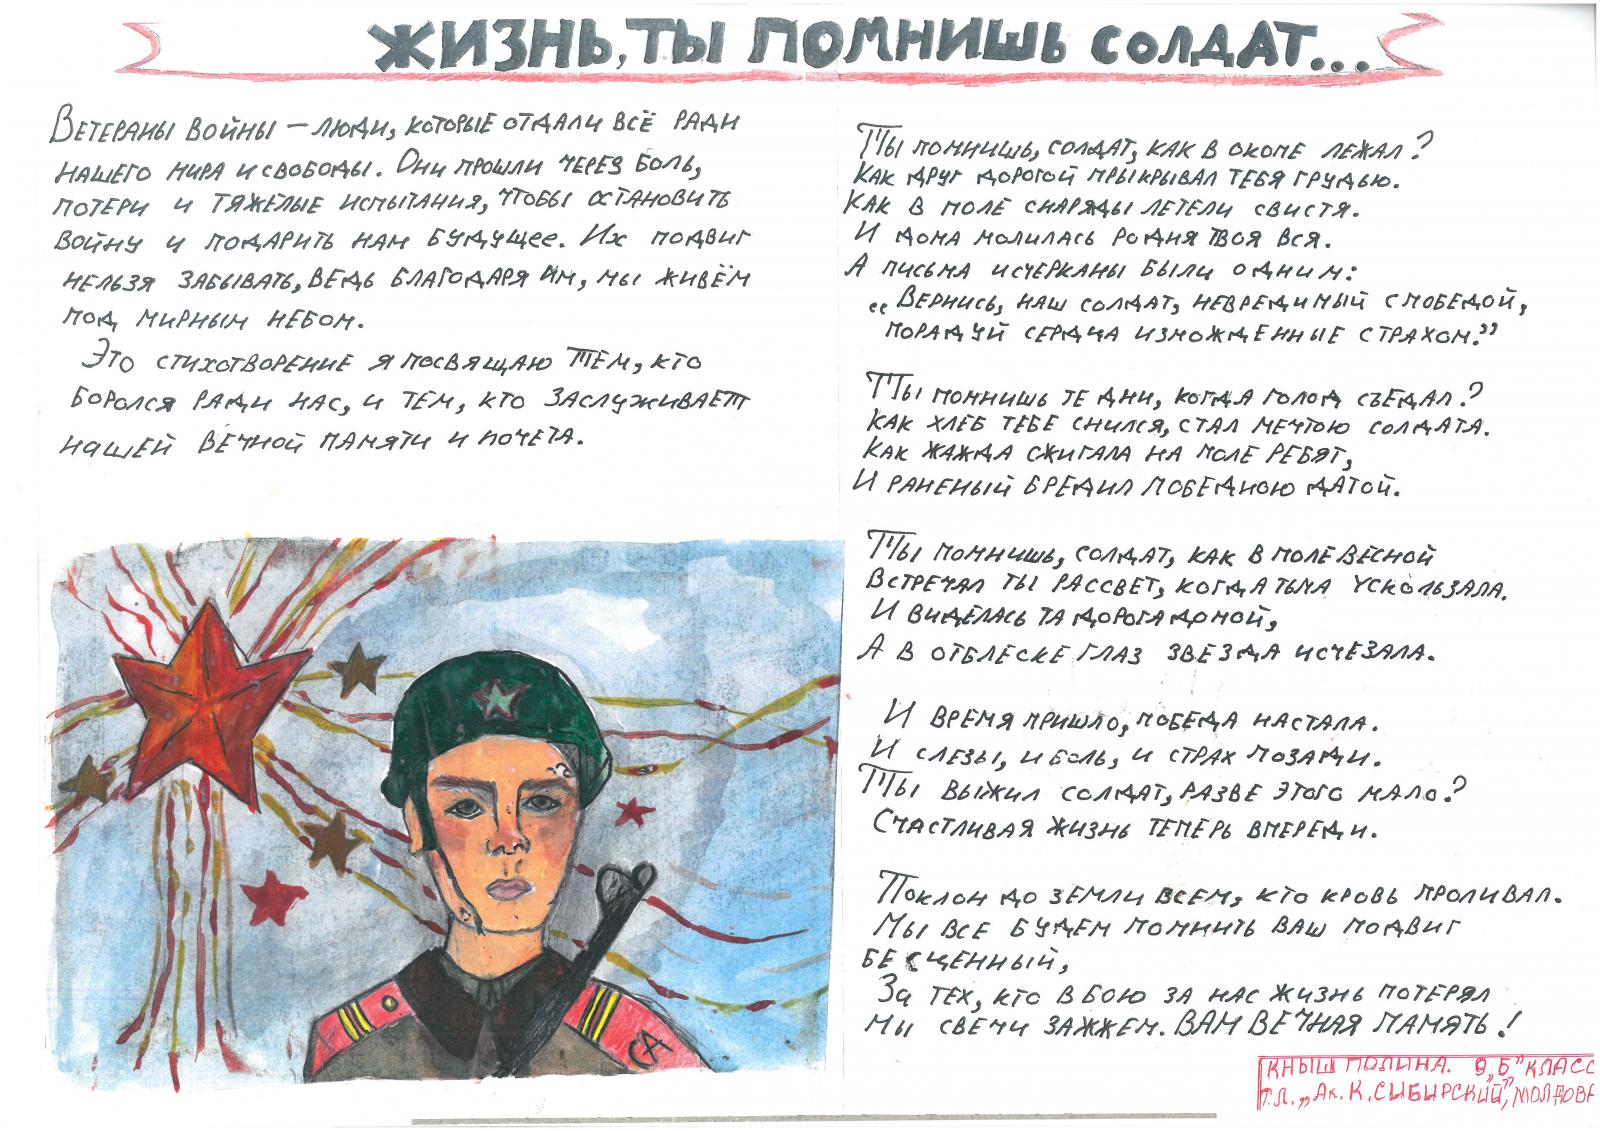 ЖИЗНЬ, ТЫ ПОМНИШЬ СОЛДАТ...
ВЕТЕРАНЫ ВОЙНЫ – ЛЮДИ, КОТОРЫЕ ОТДАЛИ ВСЁ РАДИ
НАШЕГО МИРА И СВОБОДЫ. ОНИ ПРОШЛИ ЧЕРЕЗ БОЛЬ,
ПОТЕРИ И ТЯЖЁЛЫЕ ИСПЫТАНИЯ, ЧТОБЫ ОСТАНОВИТЬ
ВОЙНУ И ПОДАРИТЬ НАМ БУДУЩЕЕ. ИХ ПОДВИГ
НЕЛЬЗЯ ЗАБЫВАТЬ, ВЕДЬ БЛАГОДАРЯ ИМ, МЫ ЖИВЁМ
ПОД МИРНЫМ НЕБОМ.
ЭТО СТИХОТВОРЕНИЕ Я ПОСВЯЩАЮ ТЕМ, КТО
БОРОЛСЯ РАДИ НАС, И ТЕМ, КТО ЗАСЛУЖИВАЕТ
НАШЕЙ ВЕЧНОЙ ПАМЯТИ И ПОЧЕТА.
ТЫ ПОМНИШЬ, СОЛДАТ, КАК В ОКОПЕ ЛЕЖАЛ?
КАК ДРУГ ДОРОГОЙ ПРЫКРЫВАЛ ТЕБЯ ГРУДЬЮ.
КАК В ПОЛЕ СНАРЯДЫ ЛЕТЕЛИ СВИСТЯ.
И ДОМА МОЛИЛАСЬ РОДНЯ ТВОЯ ВСЯ.
А ПИСЬМА ИСЧЕРКАНЫ БЫЛИ ОДНИМ:
„ВЕРНИСЬ, НАШ СОЛДАТ, НЕВРЕДИМЫЙ С ПОБЕДОЙ,
ПОРАДУЙ СЕРДЦА ИЗМОЖДЕННЫЕ СТРАХОМ.”
ТЫ ПОМНИШЬ ТЕ ДНИ, КОГДА ГОЛОД СЪЕДАЛ?
КАК ХЛЕБ ТЕБЕ СНИЛСЯ, СТАЛ МЕЧТОЮ СОЛДАТА.
КАК ЖАЖДА СЖИГАЛА НА ПОЛЕ РЕБЯТ,
И РАНЕНЫЙ БРЕДИЛ ПОБЕДНОЮ ДАТОЙ.
ТЫ ПОМНИШЬ, СОЛДАТ, КАК В ПОЛЕ ВЕСНОЙ
ВСТРЕЧАЛ ТЫ РАССВЕТ, КОГДА ТЬМА УСКОЛЬЗАЛА.
И ВИДЕЛАСЬ ТА ДОРОГА ДОМОЙ,
А В ОТБЛЕСКЕ ГЛАЗ ЗВЕЗДА ИСЧЕЗАЛА.
И ВРЕМЯ ПРИШЛО, ПОБЕДА НАСТАЛА.
И СЛЕЗЫ, И БОЛЬ, И СТРАХ ПОЗАДИ.
ТЫ ВЫЖИЛ СОЛДАТ, РАЗВЕ ЭТОГО МАЛО?
СЧАСТЛИВАЯ ЖИЗНЬ ТЕПЕРЬ ВПЕРЕДИ.
ПОКЛОН ДО ЗЕМЛИ ВСЕМ, КТО КРОВЬ ПРОЛИВАЛ.
МЫ ВСЕ БУДЕМ ПОМНИТЬ ВАШ ПОДВИГ
БЕСЦЕННЫЙ,
ЗА ТЕХ, КТО В БОЮ ЗА НАС ЖИЗНЬ ПОТЕРЯЛ
МЫ СВЕЧИ ЗАЖЖЕМ. ВАМ ВЕЧНАЯ ПАМЯТЬ!
СА
КНЫШ ПОЛИНА. 9 „Б” КЛАСС
Т.Л. „АК. К. СИБИРСКИЙ”, МОЛДОВА